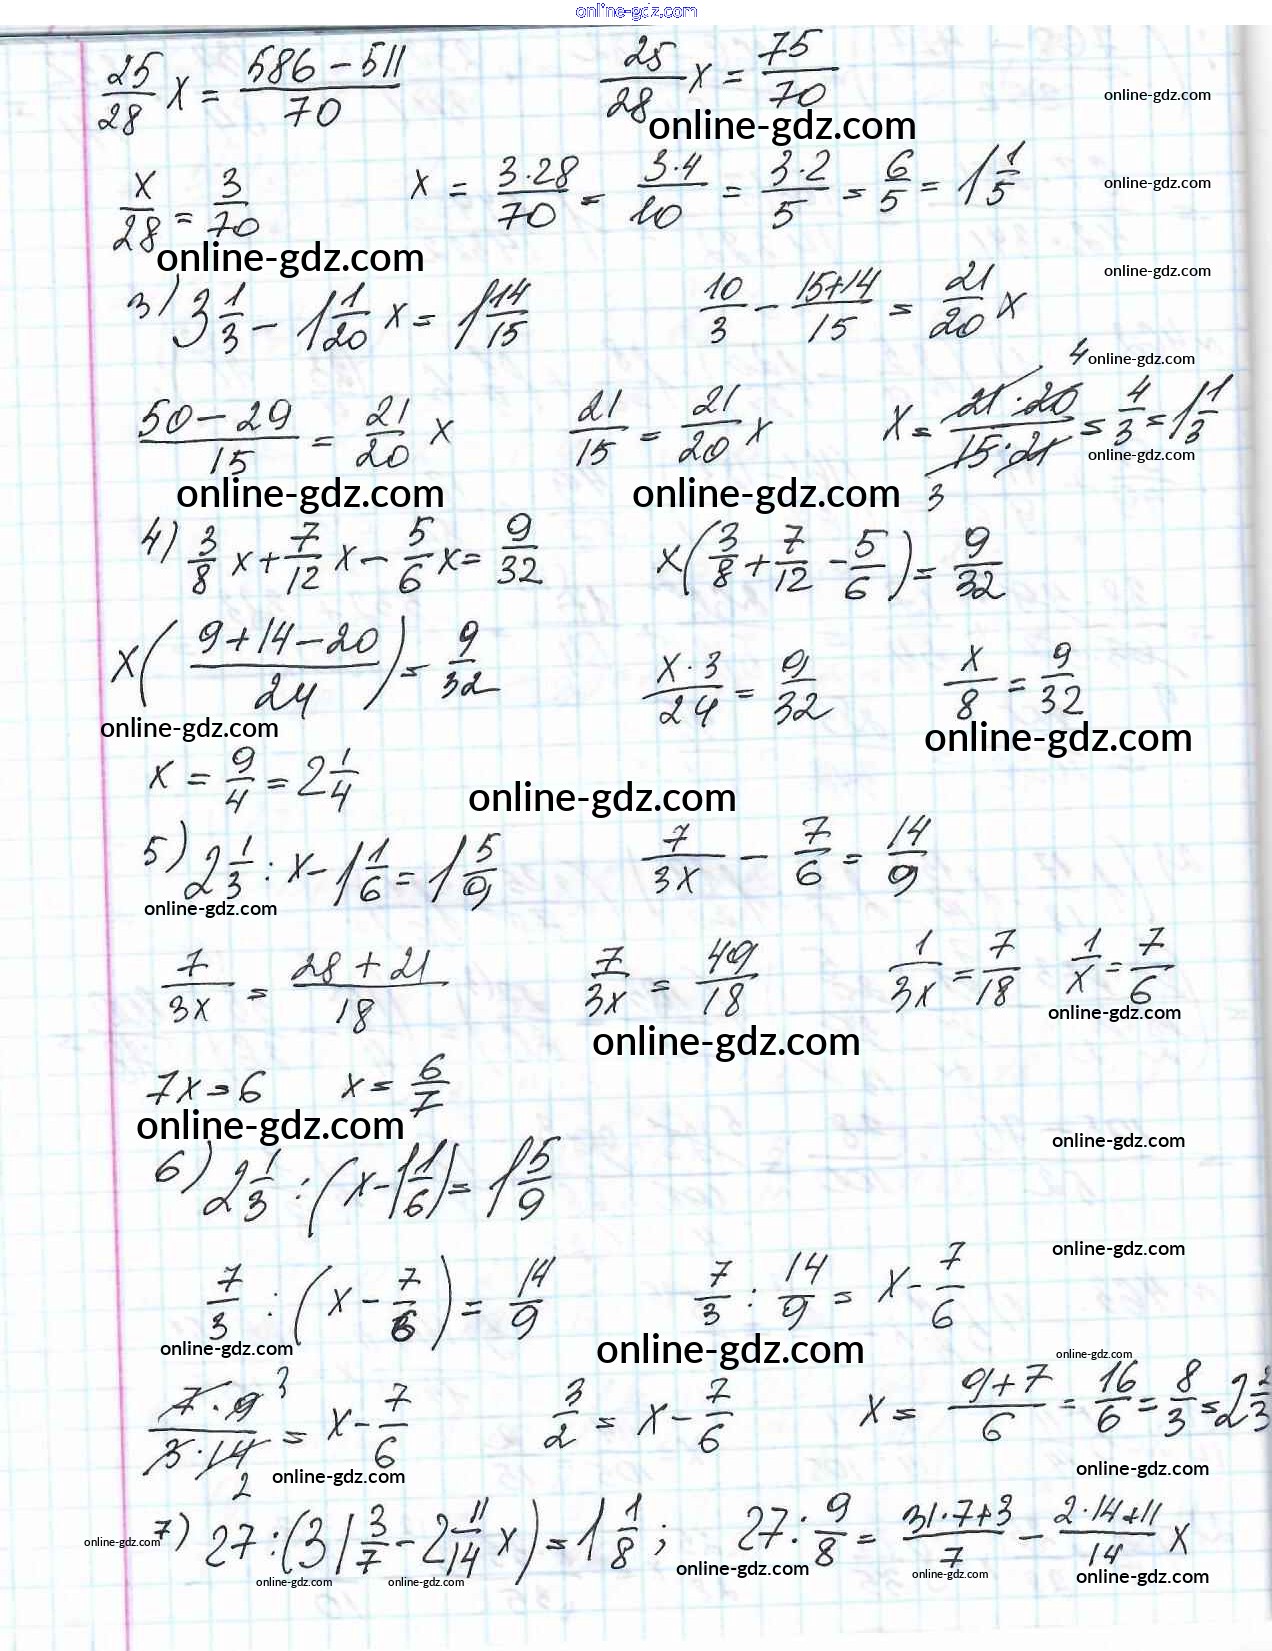 online-gdz.com
25/28 x = (586 - 511)/70    25/28 x = 75/70
online-gdz.com
online-gdz.com
x/28 = 3/70    x = (3·28)/70 = (3·4)/10 = (3·2)/5 = 6/5 = 1 1/5
online-gdz.com
online-gdz.com
online-gdz.com
3) 3 1/3 - 1 1/20 x = 1 14/15    10/3 - (15+14)/15 = 21/20 x
online-gdz.com
(50 - 29)/15 = 21/20 x    21/15 = 21/20 x    x = (21·20 4)/(15·21 3) = 4/3 = 1 1/3
online-gdz.com
online-gdz.com online-gdz.com
4) 3/8 x + 7/12 x - 5/6 x = 9/32    x(3/8 + 7/12 - 5/6) = 9/32
x((9+14-20)/24) = 9/32    (x·3)/24 = 9/32    x/8 = 9/32
online-gdz.com online-gdz.com
x = 9/4 = 2 1/4
online-gdz.com
5) 2 1/3 : x - 1 1/6 = 1 5/9    7/3x - 7/6 = 14/9
online-gdz.com
7/3x = (28 + 21)/18    7/3x = 49/18    1/3x = 7/18    1/x = 7/6
online-gdz.com
online-gdz.com
7x = 6    x = 6/7
online-gdz.com online-gdz.com
6) 2 1/3 : (x - 1 1/6) = 1 5/9
online-gdz.com
7/3 : (x - 7/6) = 14/9    7/3 : 14/9 = x - 7/6
online-gdz.com online-gdz.com online-gdz.com
(7·9 3)/(3·14 2) = x - 7/6    3/2 = x - 7/6    x = (9+7)/6 = 16/6 = 8/3 = 2 2/3
online-gdz.com online-gdz.com
7) 27 : (31 3/7 - 2 11/14 x) = 1 1/8 ;    27 : 9/8 = (31·7+3)/7 - (2·14+11)/14 x
online-gdz.com online-gdz.com online-gdz.com online-gdz.com online-gdz.com online-gdz.com